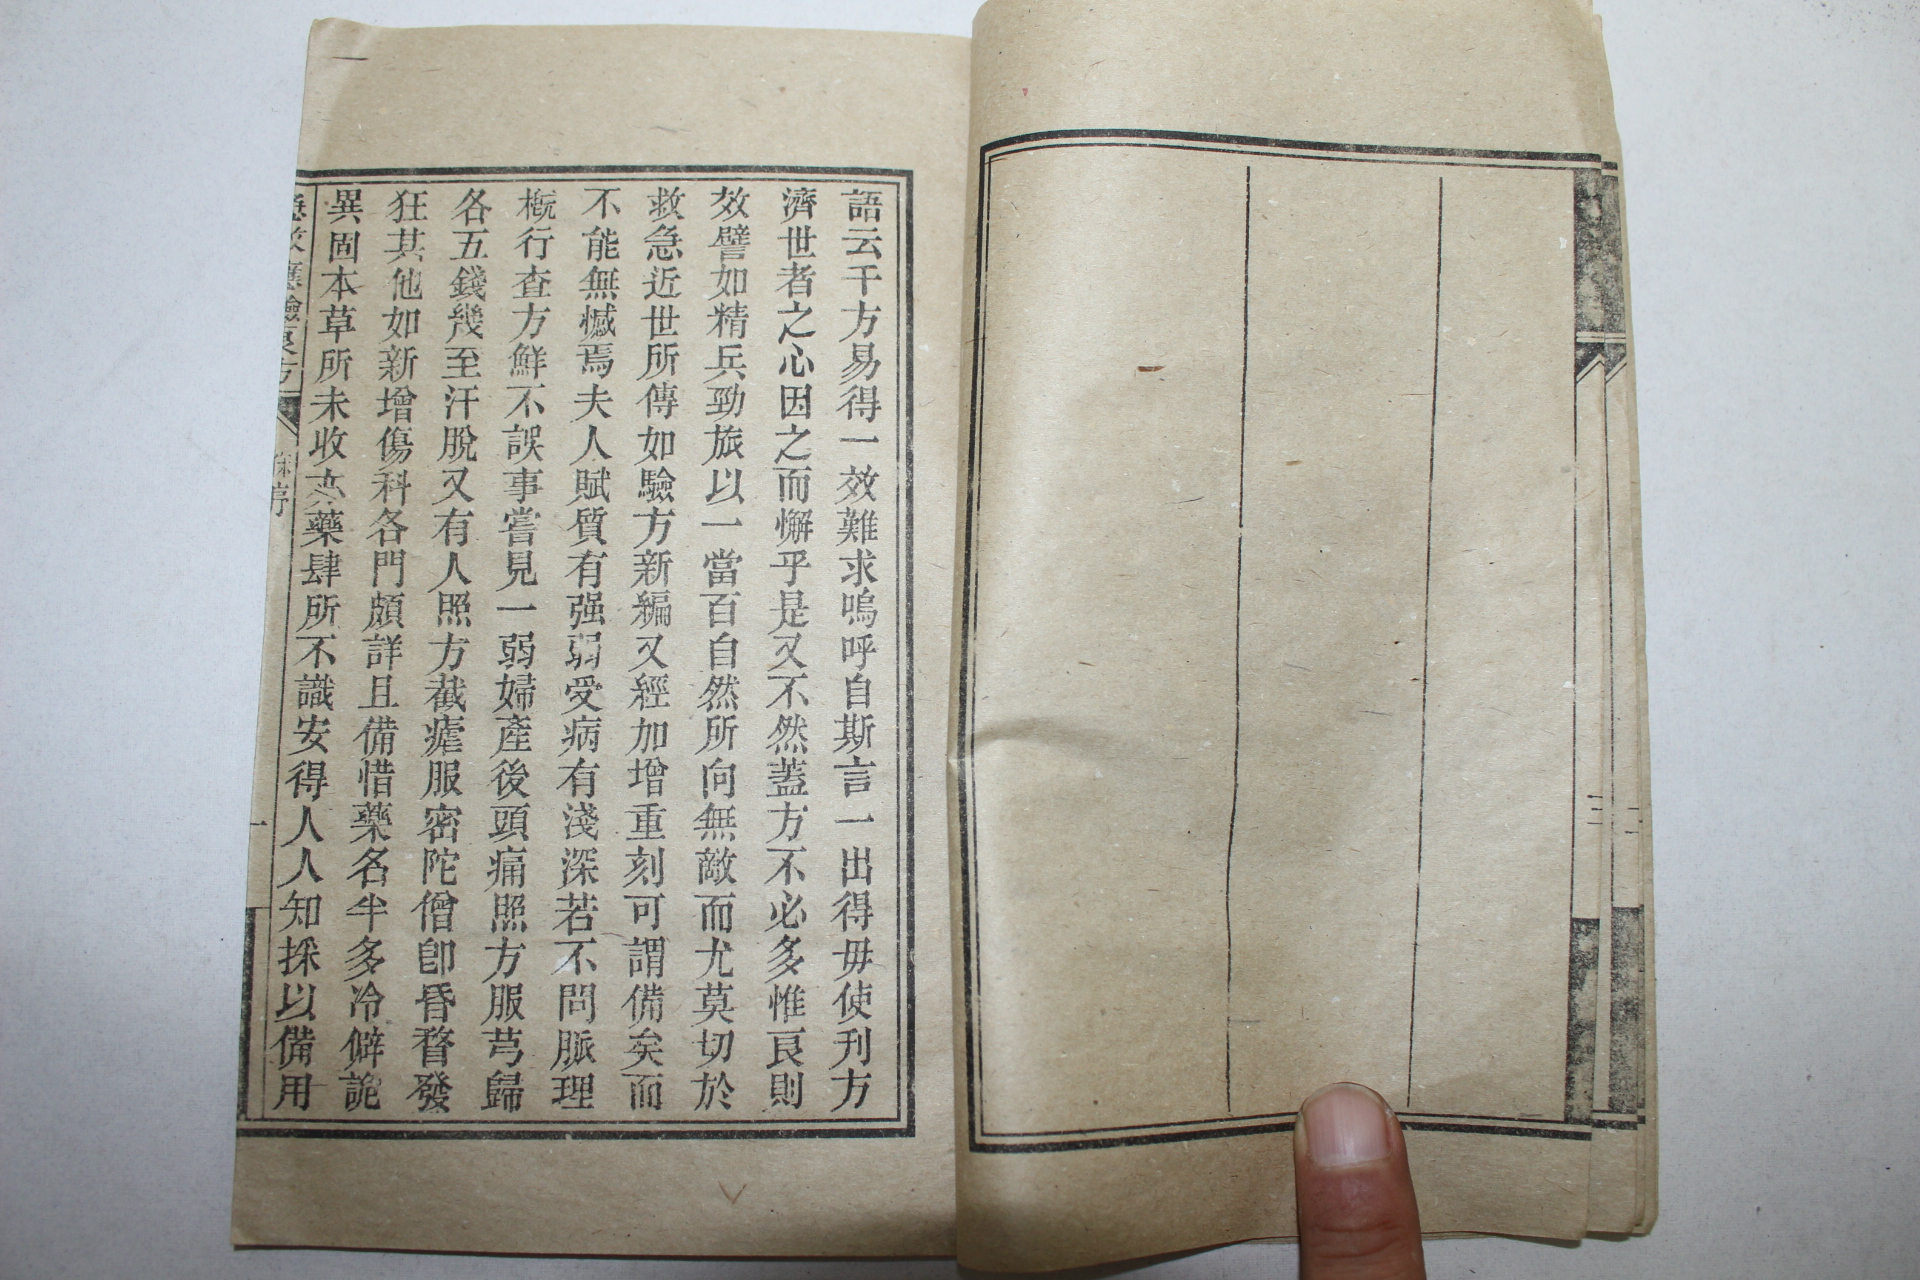 語云千方易得一效難求嗚呼自斯言一出得毋使刊方
濟世者之心因之而懈乎是又不然蓋方不必多惟良則
效譬如精兵勁旅以一當百自然所向無敵而尤莫切於
救急近世所傳如驗方新編又經加增重刻可謂備矣而
不能無憾焉夫人賦質有强弱受病有淺深若不問脈理
槪行查方鮮不誤事嘗見一弱婦產後頭痛照方服芎歸
各五錢幾至汗脫又有人照方截瘧服密陀僧卽昏瞀發
狂其他如新增傷科各門頗詳且備惜藥名半多冷僻詭
異固本草所未收亦藥肆所不識安得人人知採以備用